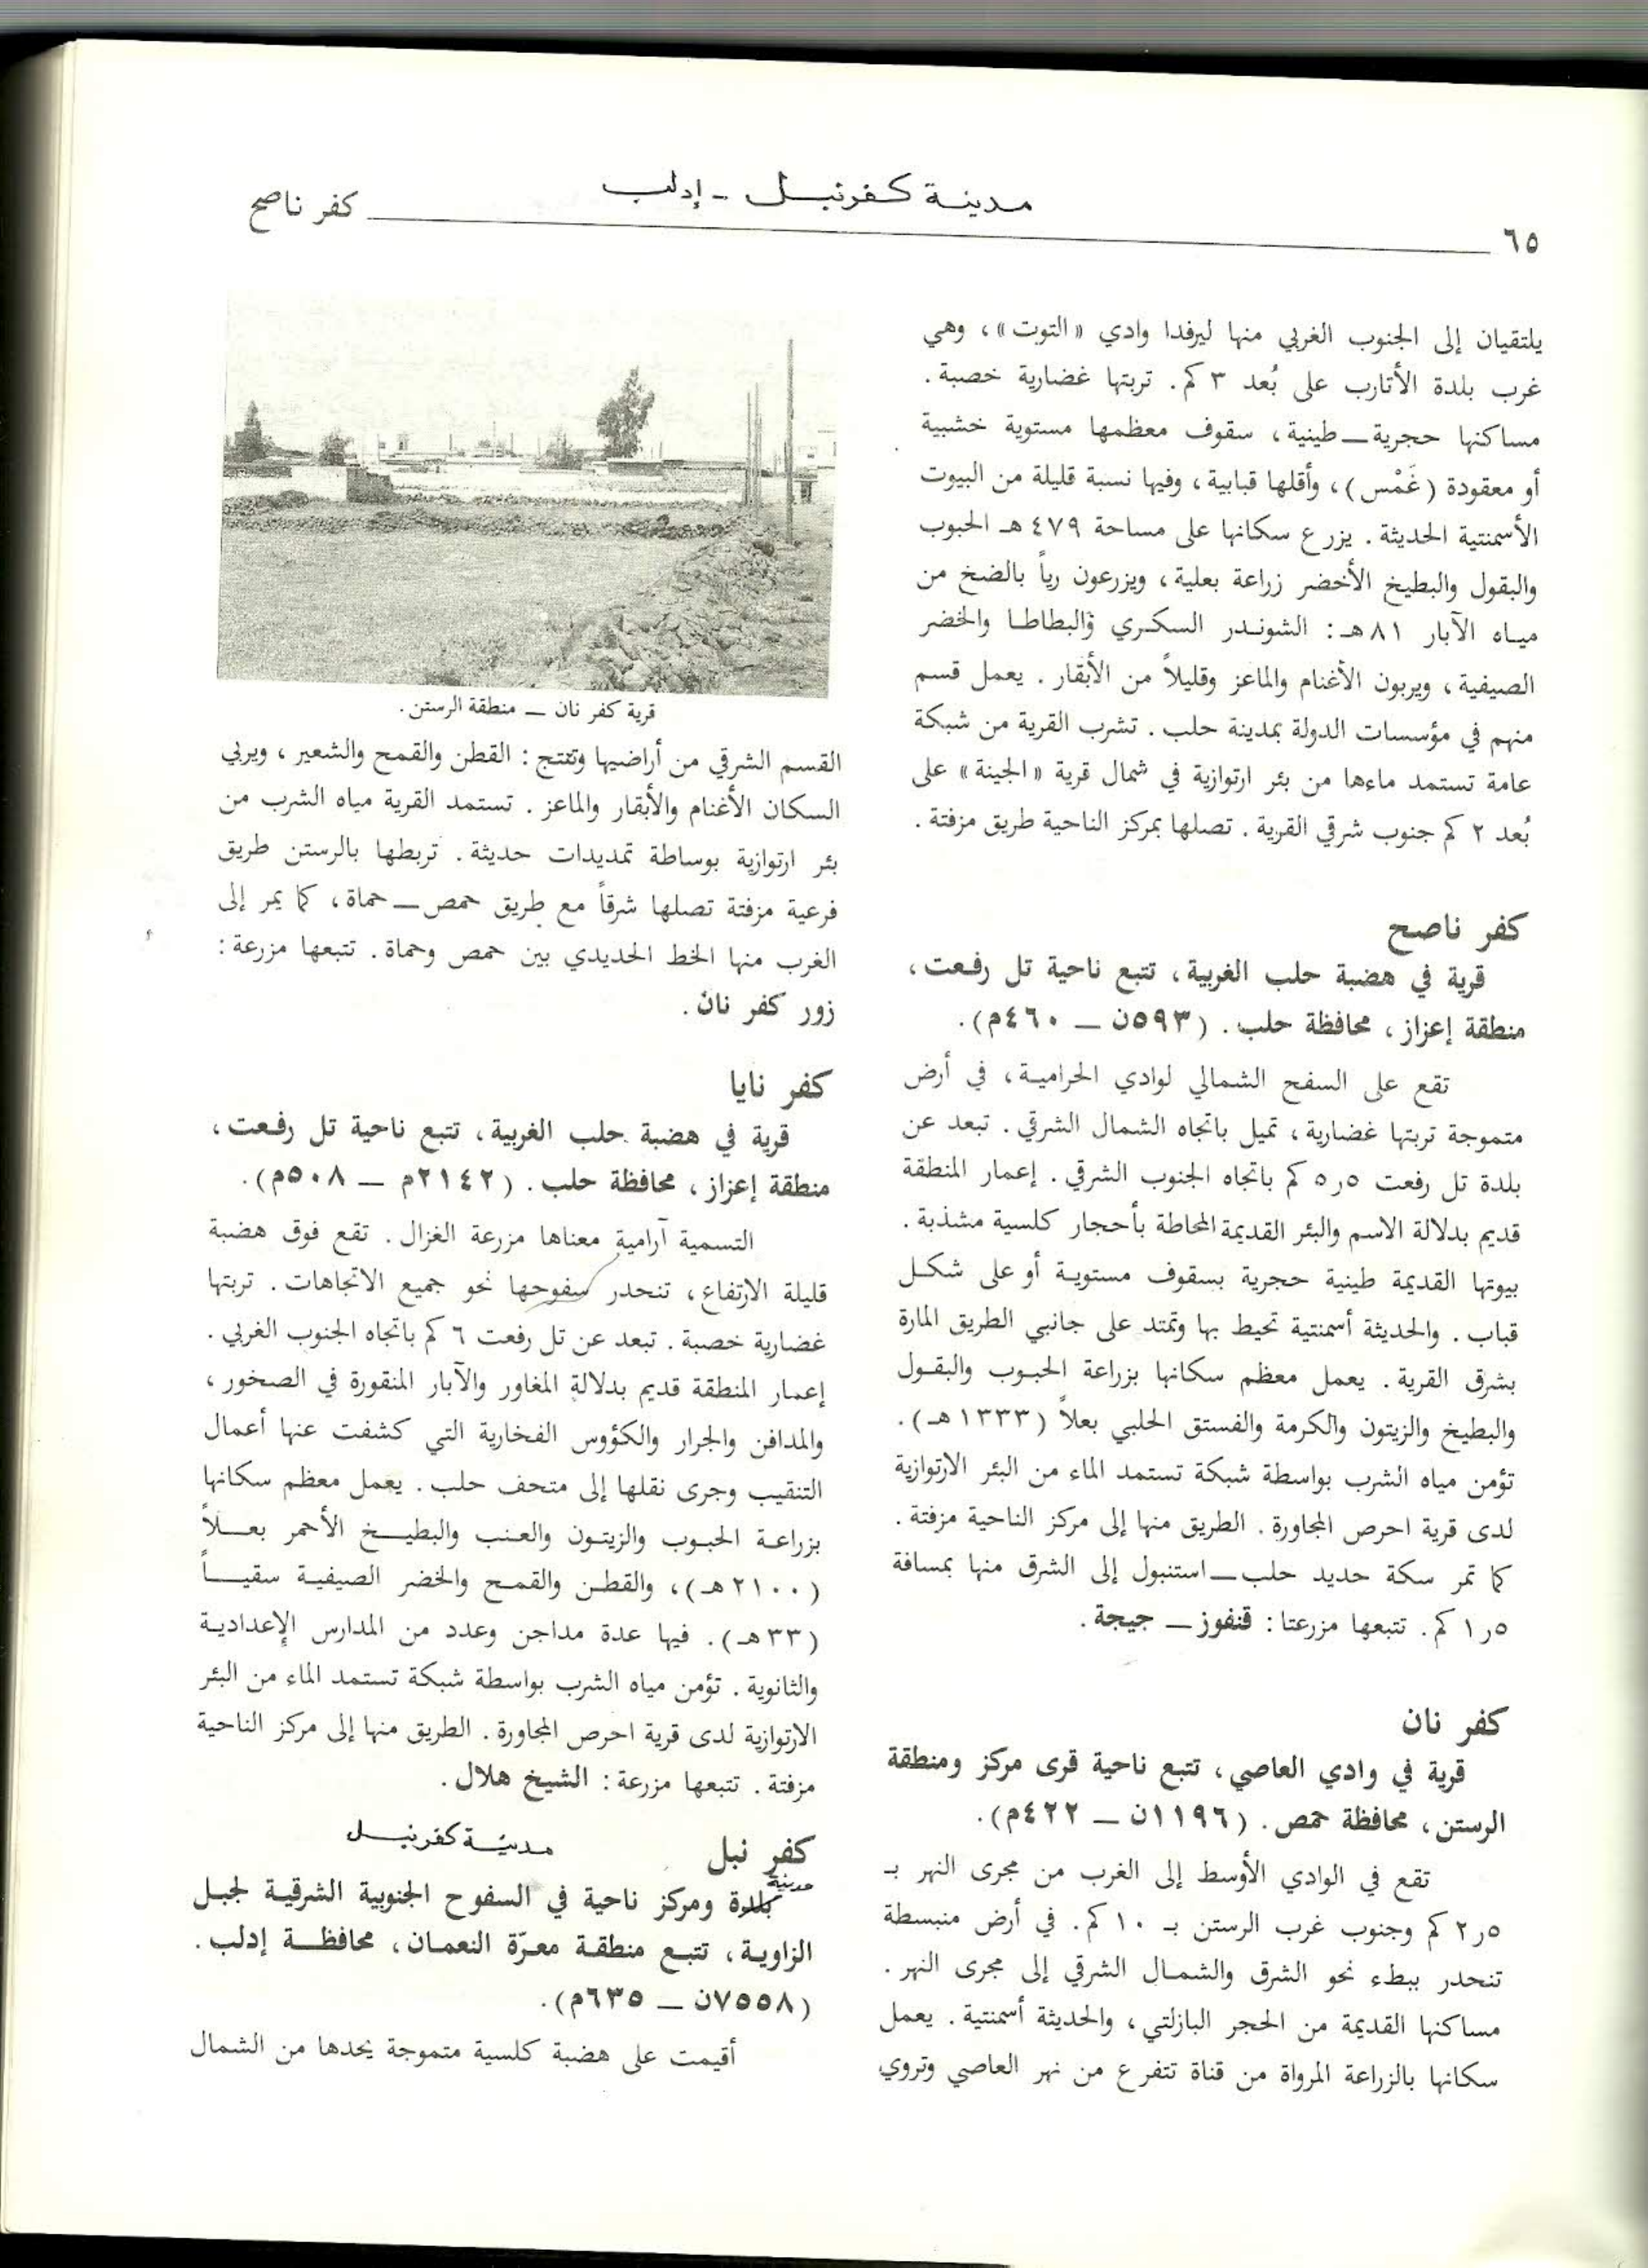 مدينة كفرنبل - إدلب
٦٥
كفر ناصح
يلتقيان إلى الجنوب الغربي منها ليرفدا وادي «التوت»، وهي
غرب بلدة الأتارب على بُعد ٣ كم. تربتها غضارية خصبة.
مساكنها حجرية—طينية، سقوف معظمها مستوية خشبية
أو معقودة (غَمْس)، وأقلها قبابية، وفيها نسبة قليلة من البيوت
الأسمنتية الحديثة. يزرع سكانها على مساحة ٤٧٩ هـ الحبوب
والبقول والبطيخ الأخضر زراعة بعلية، ويزرعون رياً بالضخ من
مياه الآبار ٨١ هـ: الشوندر السكري والبطاطا والخضر
الصيفية، ويربون الأغنام والماعز وقليلاً من الأبقار. يعمل قسم
منهم في مؤسسات الدولة بمدينة حلب. تشرب القرية من شبكة
عامة تستمد ماءها من بئر ارتوازية في شمال قرية «الجينة» على
بُعد ٢ كم جنوب شرقي القرية. تصلها بمركز الناحية طريق مزفتة.
كفر ناصح
قرية في هضبة حلب الغربية، تتبع ناحية تل رفعت،
منطقة إعزاز، محافظة حلب. (٥٩٣ن — ٤٦٠م).
تقع على السفح الشمالي لوادي الحرامية، في أرض
متموجة تربتها غضارية، تميل باتجاه الشمال الشرقي. تبعد عن
بلدة تل رفعت ٥ر٥ كم باتجاه الجنوب الشرقي. إعمار المنطقة
قديم بدلالة الاسم والبئر القديمة المحاطة بأحجار كلسية مشذبة.
بيوتها القديمة طينية حجرية بسقوف مستوية أو على شكل
قباب. والحديثة أسمنتية تحيط بها وتمتد على جانبي الطريق المارة
بشرق القرية. يعمل معظم سكانها بزراعة الحبوب والبقول
والبطيخ والزيتون والكرمة والفستق الحلبي بعلاً (١٣٣٣ هـ).
تؤمن مياه الشرب بواسطة شبكة تستمد الماء من البئر الارتوازية
لدى قرية احرص المجاورة. الطريق منها إلى مركز الناحية مزفتة.
كما تمر سكة حديد حلب—استنبول إلى الشرق منها بمسافة
٥ر١ كم. تتبعها مزرعتا: قنفوز — جيجة.
كفر نان
قرية في وادي العاصي، تتبع ناحية قرى مركز ومنطقة
الرستن، محافظة حمص. (١١٩٦ن — ٤٢٢م).
تقع في الوادي الأوسط إلى الغرب من مجرى النهر بـ
٥ر٢ كم وجنوب غرب الرستن بـ ١٠ كم. في أرض منبسطة
تنحدر ببطء نحو الشرق والشمال الشرقي إلى مجرى النهر.
مساكنها القديمة من الحجر البازلتي، والحديثة أسمنتية. يعمل
سكانها بالزراعة المرواة من قناة تتفرع من نهر العاصي وتروي
قرية كفر نان — منطقة الرستن.
القسم الشرقي من أراضيها وتنتج: القطن والقمح والشعير، ويربي
السكان الأغنام والأبقار والماعز. تستمد القرية مياه الشرب من
بئر ارتوازية بوساطة تمديدات حديثة. تربطها بالرستن طريق
فرعية مزفتة تصلها شرقاً مع طريق حمص—حماة، كما يمر إلى
الغرب منها الخط الحديدي بين حمص وحماة. تتبعها مزرعة:
زور كفر نان.
كفر نايا
قرية في هضبة حلب الغربية، تتبع ناحية تل رفعت،
منطقة إعزاز، محافظة حلب. (٢١٤٢م — ٥٠٨م).
التسمية آرامية معناها مزرعة الغزال. تقع فوق هضبة
قليلة الارتفاع، تنحدر سفوحها نحو جميع الاتجاهات. تربتها
غضارية خصبة. تبعد عن تل رفعت ٦ كم باتجاه الجنوب الغربي.
إعمار المنطقة قديم بدلالة المغاور والآبار المنقورة في الصخور،
والمدافن والجرار والكؤوس الفخارية التي كشفت عنها أعمال
التنقيب وجرى نقلها إلى متحف حلب. يعمل معظم سكانها
بزراعة الحبوب والزيتون والعنب والبطيخ الأحمر بعلاً
(٢١٠٠ هـ)، والقطن والقمح والخضر الصيفية سقياً
(٣٣ هـ). فيها عدة مداجن وعدد من المدارس الإعدادية
والثانوية. تؤمن مياه الشرب بواسطة شبكة تستمد الماء من البئر
الارتوازية لدى قرية احرص المجاورة. الطريق منها إلى مركز الناحية
مزفتة. تتبعها مزرعة: الشيخ هلال.
كفر نبل مدينة كفرنبل
مدينة
بلدة ومركز ناحية في السفوح الجنوبية الشرقية لجبل
الزاوية، تتبع منطقة معرّة النعمان، محافظة إدلب.
(٧٥٥٨ن — ٦٣٥م).
أقيمت على هضبة كلسية متموجة يحدها من الشمال